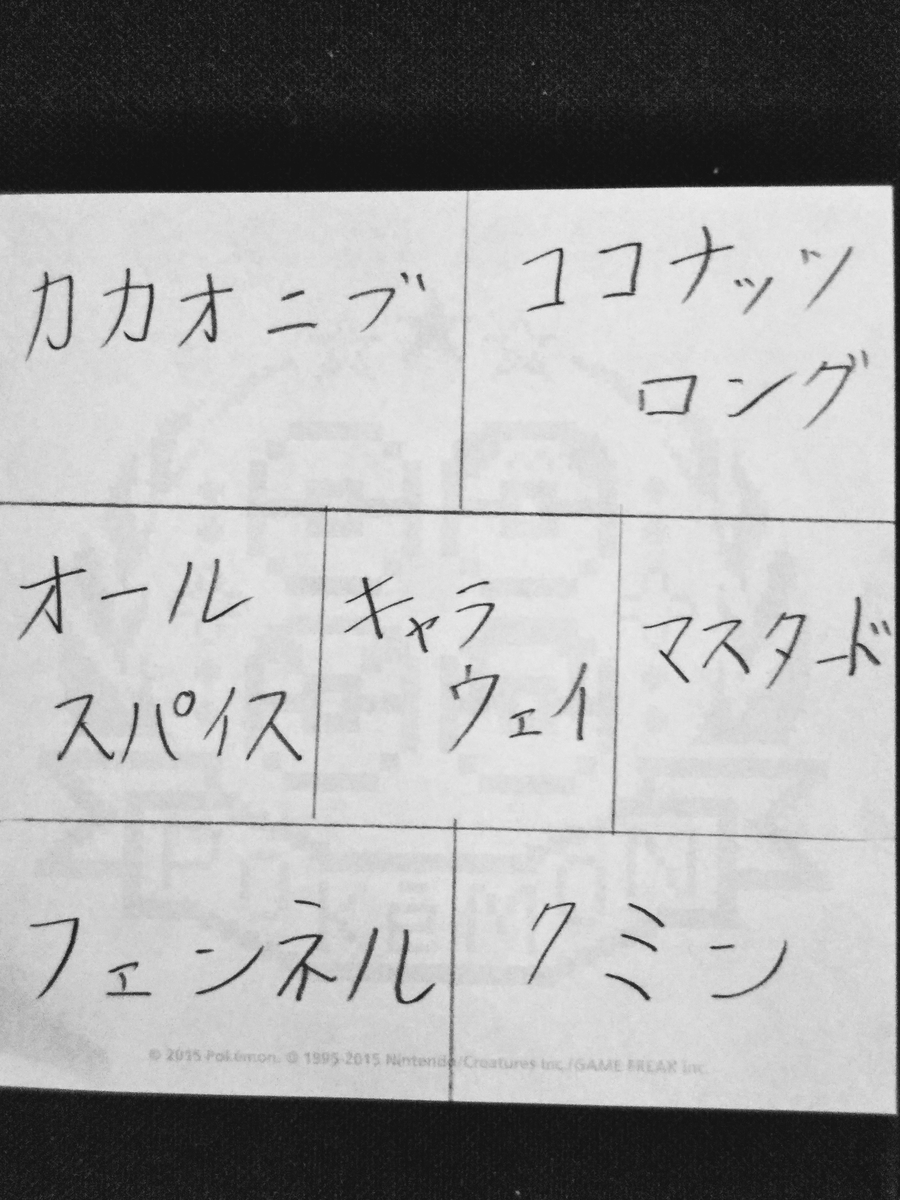 カカオニブ
ココナッツ
ロング
オール
スパイス
キャラ
ウェイ
マスタード
フェンネル
クミン
© 2015 Pokémon. © 1995-2015 Nintendo/Creatures Inc./GAME FREAK inc.